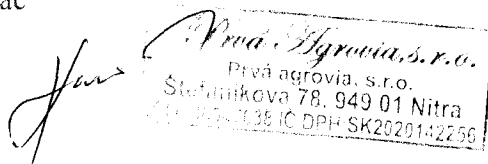 ac
Prvá Agrovia, s.r.o.
Prvá agrovia, s.r.o.
Štefánikova 78, 949 01 Nitra
IČ DPH SK2020142256